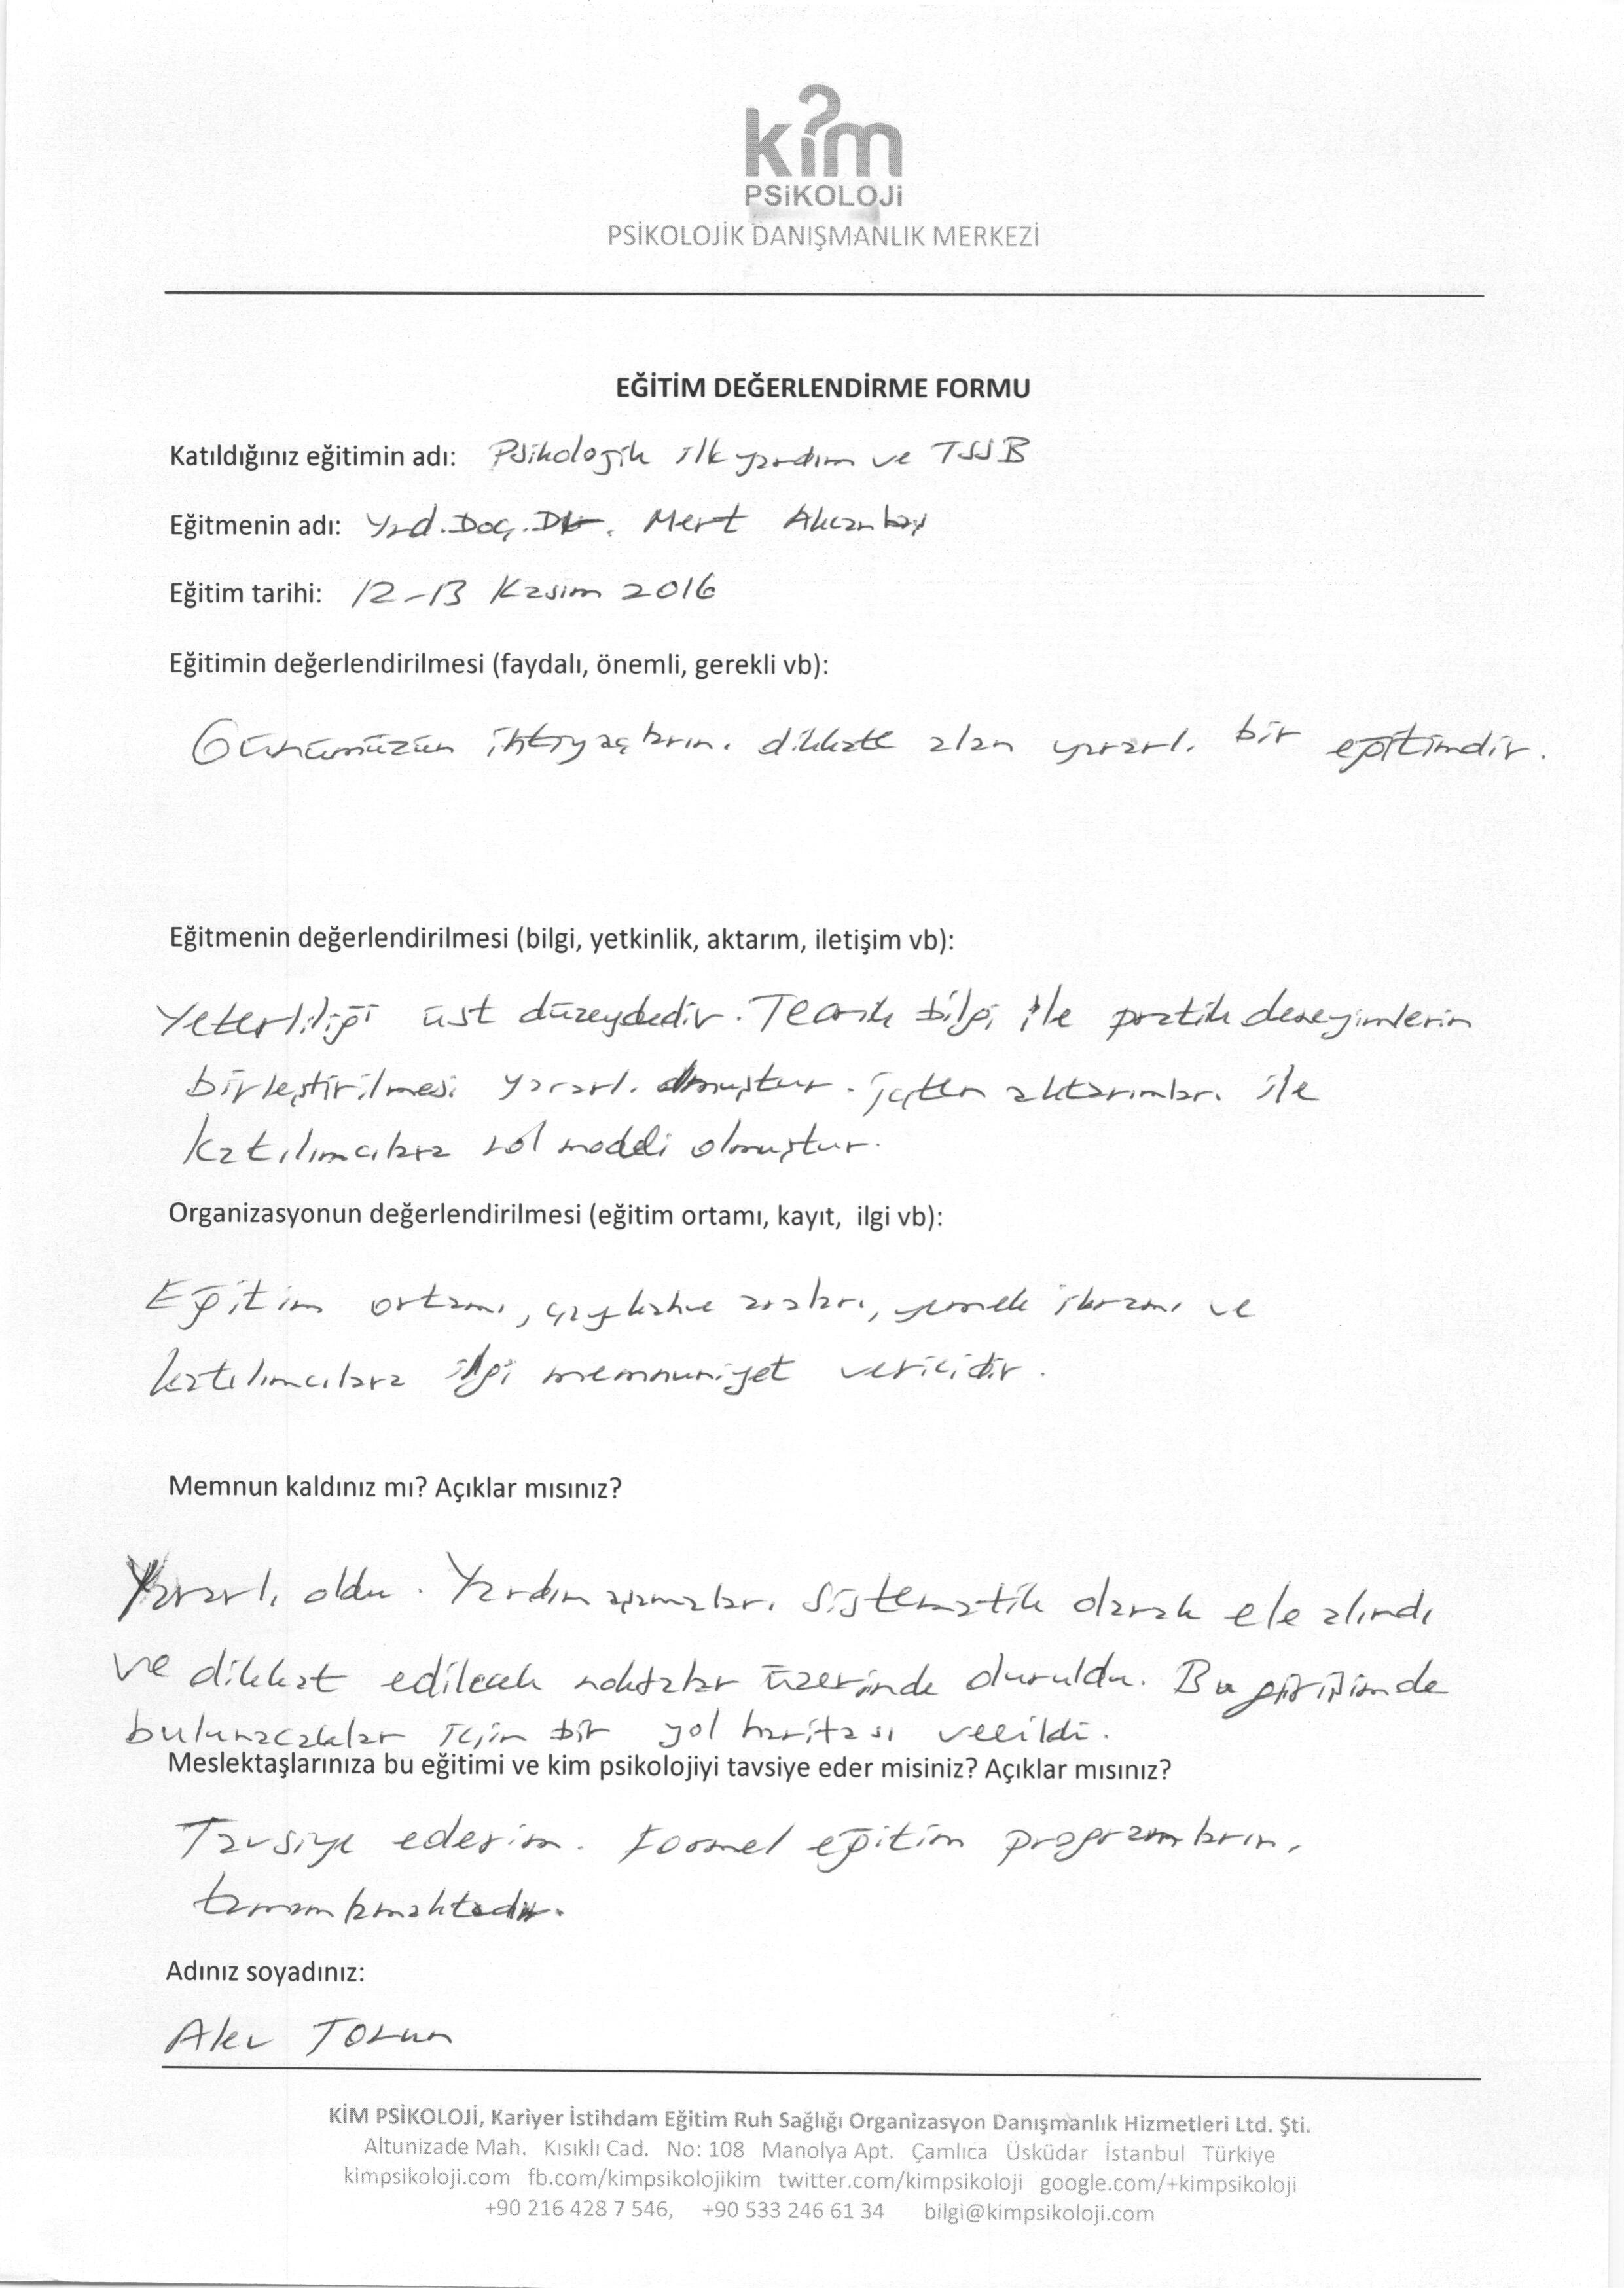 kim
PSiKOLOJi
PSİKOLOJİK DANIŞMANLIK MERKEZİ
EĞİTİM DEĞERLENDİRME FORMU
Katıldığınız eğitimin adı: Psikolojik ilk yardım ve TSSB
Eğitmenin adı: Yrd. Doç. Dr. Mert Akcanbaş
Eğitim tarihi: 12-13 Kasım 2016
Eğitimin değerlendirilmesi (faydalı, önemli, gerekli vb):
Günümüzün ihtiyaçlarını dikkate alan yararlı bir eğitimdir.
Eğitmenin değerlendirilmesi (bilgi, yetkinlik, aktarım, iletişim vb):
Yeterliliği üst düzeydedir. Teorik bilgi ile pratik deneyimlerin
birleştirilmesi yararlı olmuştur. içten aktarımları ile
katılımcılara rol modeli olmuştur.
Organizasyonun değerlendirilmesi (eğitim ortamı, kayıt, ilgi vb):
Eğitim ortamı, çay kahve araları, yemek ikramı ve
katılımcılara ilgi memnuniyet vericidir.
Memnun kaldınız mı? Açıklar mısınız?
Yararlı oldu. Yardım aşamaları sistematik olarak ele alındı
ve dikkat edilecek noktalar üzerinde duruldu. Bu girişimde
bulunacaklar için bir yol haritası verildi.
Meslektaşlarınıza bu eğitimi ve kim psikolojiyi tavsiye eder misiniz? Açıklar mısınız?
Tavsiye ederim. Formel eğitim programlarını
tamamlamaktadır.
Adınız soyadınız:
Alev Torun
KİM PSİKOLOJİ, Kariyer İstihdam Eğitim Ruh Sağlığı Organizasyon Danışmanlık Hizmetleri Ltd. Şti.
Altunizade Mah. Kısıklı Cad. No: 108 Manolya Apt. Çamlıca Üsküdar İstanbul Türkiye
kimpsikoloji.com fb.com/kimpsikolojikim twitter.com/kimpsikoloji google.com/+kimpsikoloji
+90 216 428 7 546, +90 533 246 61 34 bilgi@kimpsikoloji.com